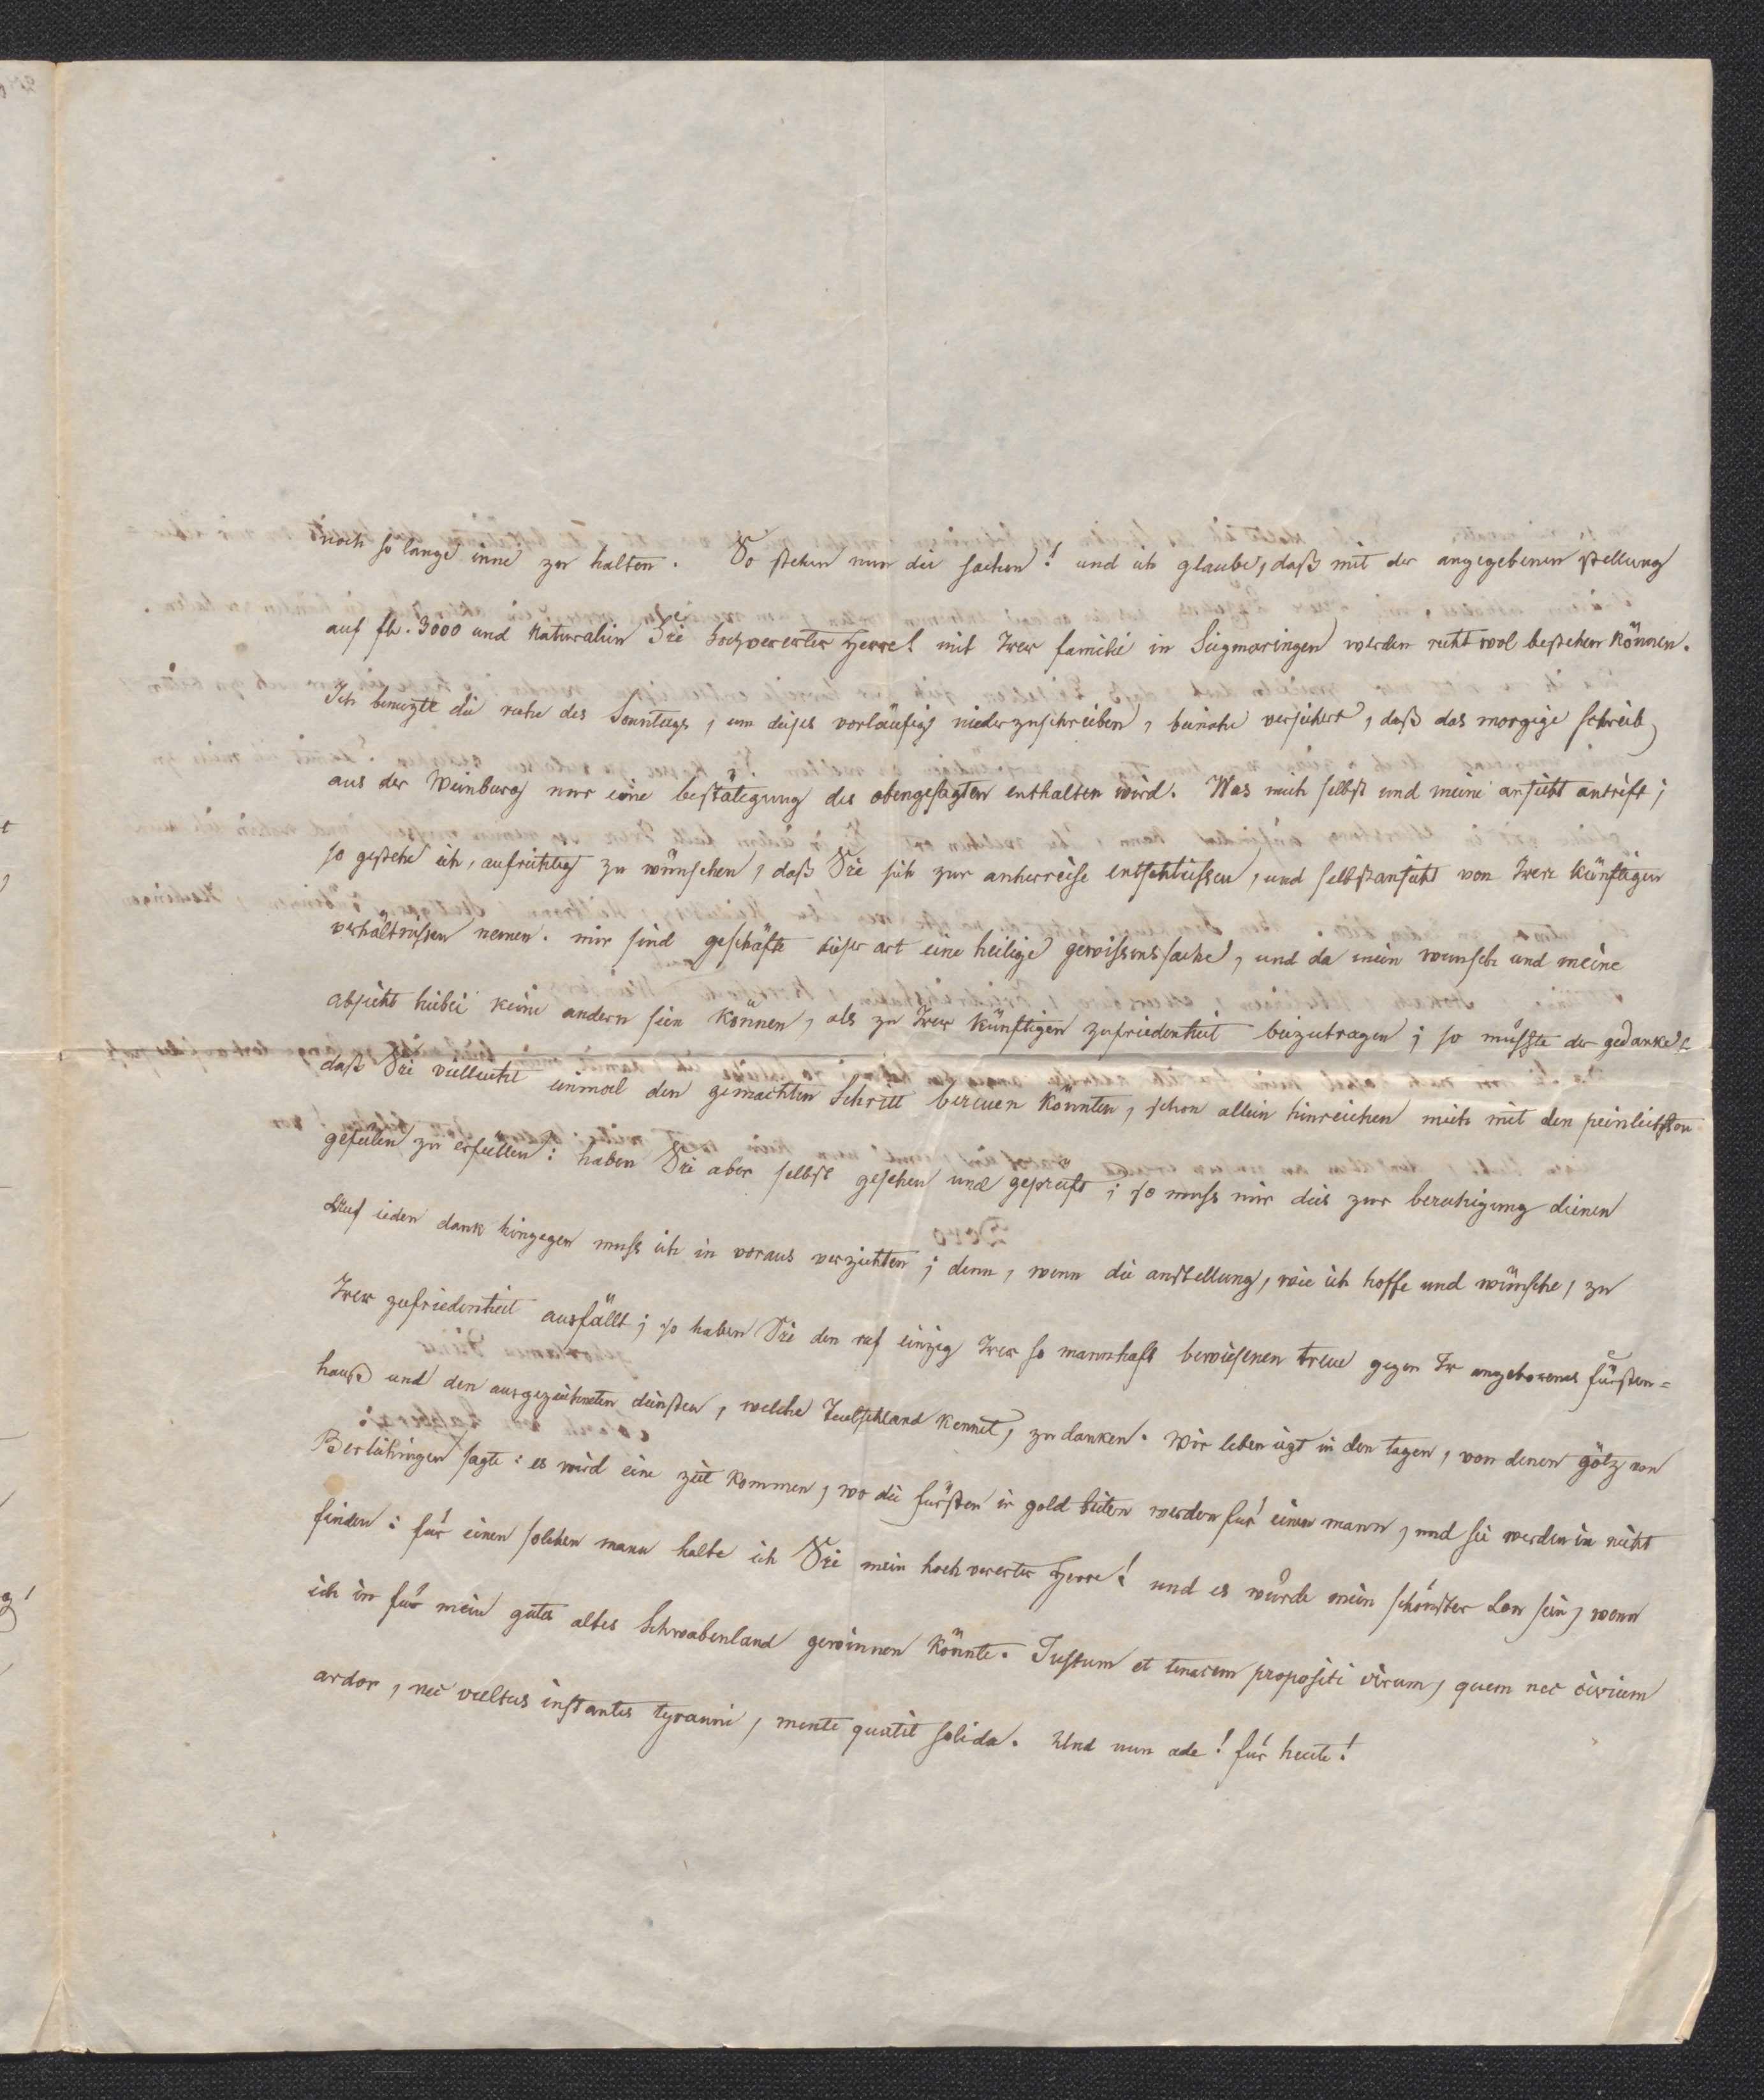 noch so lange inne zu halten. So stehen nun die sachen! und ich glaube, daß mit der angegebenen stellung
auf fl. 3000 und Naturalien Sie hochvererter Herre! mit Irer familie in Siegmaringen werden recht wol bestehen können.
Ich benuzte die ruhe des Sonntags, um dieses vorläufig niederzuschreiben, beinahe versichert, daß das morgige schreib
aus der Weinburg nur eine bestätigung des obengesagten enthalten wird. Was mich selbst und meine ansicht antrift;
so gestehe ich, aufrichtig zu wünschen, daß Sie sich zur anherreise entschliessen, und selbstansicht von Iren künftigen
verhältnissen nemen. mir sind geschäfte dieser art eine heilige gewissenssache, und da mein wunsch und meine
absicht hiebei keine andern sein können, als zu Irer künftigen zufriedenheit beizutragen; so müsste der gedanke
daß Sie vielleicht einmal den gemachten Schritt bereuen könnten, schon allein hinreichen mich mit den peinlichsten
gefülen zu erfüllen: haben Sie aber selbst gesehen und geprüft; so muss mir dies zur beruhigung dienen
Auf ieden dank hingegen muss ich in voraus verzichten; denn, wenn die anstellung, wie ich hoffe und wünsche, zu
Irer zufriedenheit ausfällt; so haben Sie den ruf einzig Irer so mannhaft bewiesenen treue gegen Ir angeborenes fürsten-
hauß und den ausgezeichneten diensten, welche Teutschland kennet, zu danken. Wir leben izt in den tagen, von denen götz von
Berlichingen sagte: es wird eine zeit kommen, wo die fürsten ir gold bieten werden für einen mann, und sie werden in nicht
finden: für einen solchen mann halte ich Sie mein hochvererter Herre! und es würde mein schönster Lon sein, wenn
ich in für mein gutes altes Schwabenland gewinnen könnte. Justum et tenacem propositi virum, quem nec civium
ardor, nec vultus instantis tyranni, mente quatit solida. Und nun ade! für heute!